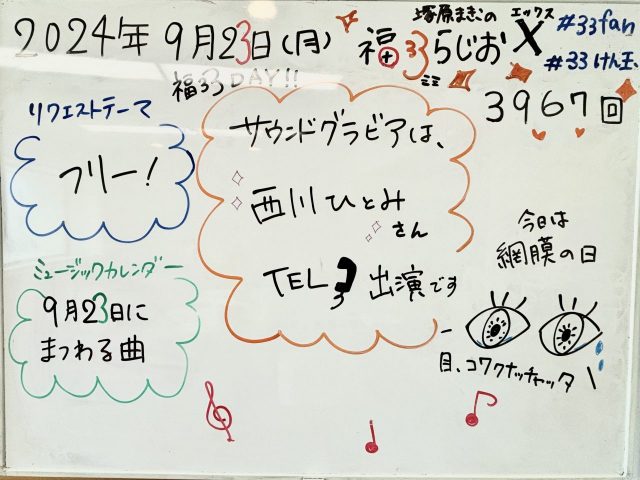 2024年 9月23日(月)
塚原まきこの
福33らじお
エックス
X
ミミ
#33fan
#33けん玉、
福33DAY!!
3967回
リクエストテーマ
フリー!
サウンドグラビアは、
西川ひとみ
さん
TEL 出演です
ミュージックカレンダー
9月23日に
まつわる曲
今日は
網膜の日
目、コワクナッチャッタ